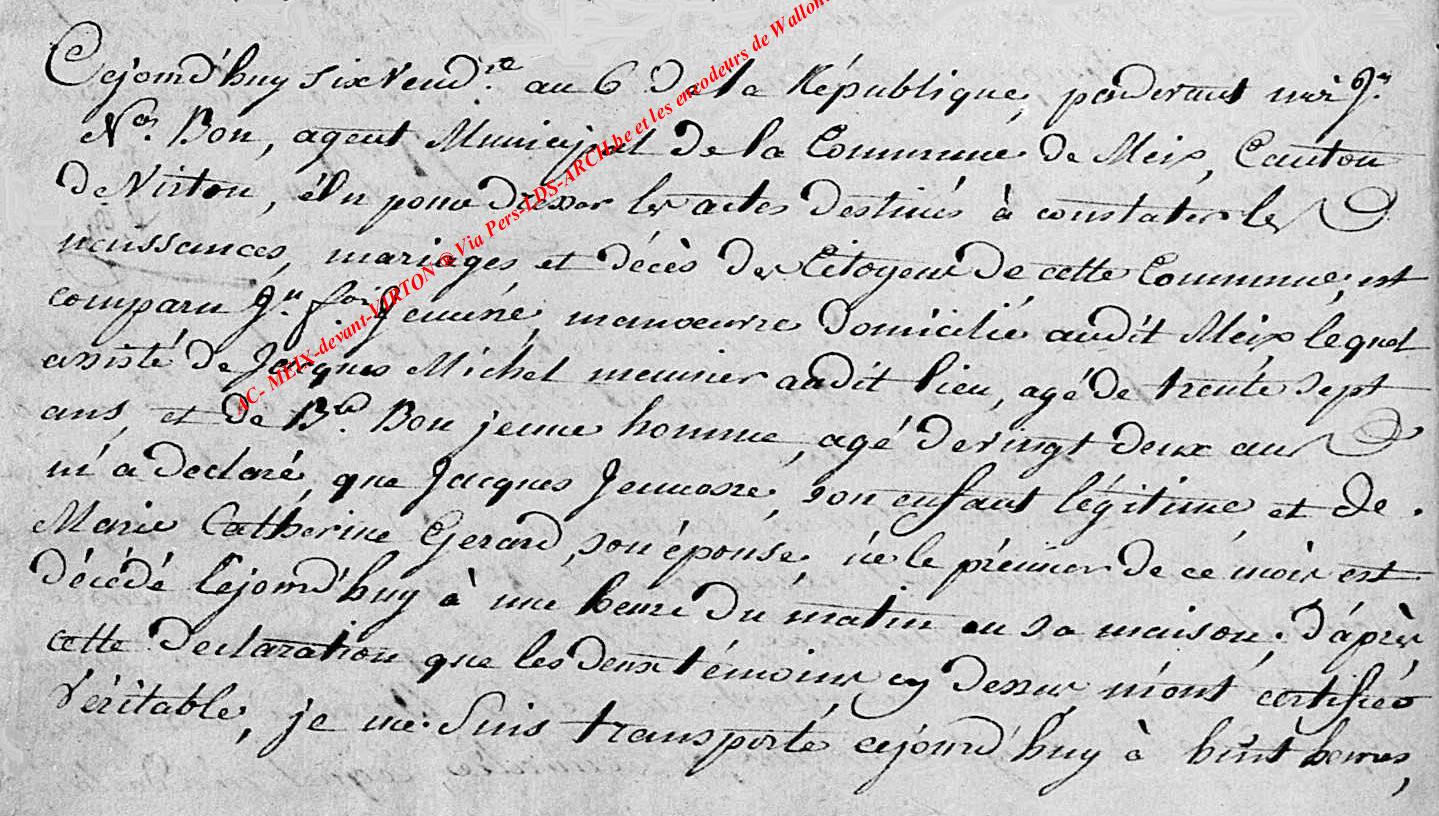 Cejourd'huy six Vend.re an 6 de la République, pardevant moi J.n
N.as Bon, agent Municipal de la Commune de Meix, Canton
de Virton, élu pour dresser les actes destinés à constater les
naissances, mariages et décès des Citoyens de cette Commune, est
comparu J.n f.ois manoeuvre domicilié audit Meix, lequel
assisté de Jacques Michel meunier audit lieu, agé de trente sept
ans, et de B.d Bon jeune homme, agé de vingt deux ans
m'a declaré, que Jacques son enfant légitime, et de
Marie Catherine Gerard, son épouse, né le prémier de ce mois est
décédé Cejourd'huy à une heure du matin en sa maison. D'après
cette declaration que les deux témoins cy dessus m'ont certifiée
Véritable, je me suis transporté cejourd'huy à huit heures,
AC- MEIX-devant-VIRTON @ Via Pers-LDS-ARCH.be et les encodeurs de Wallon